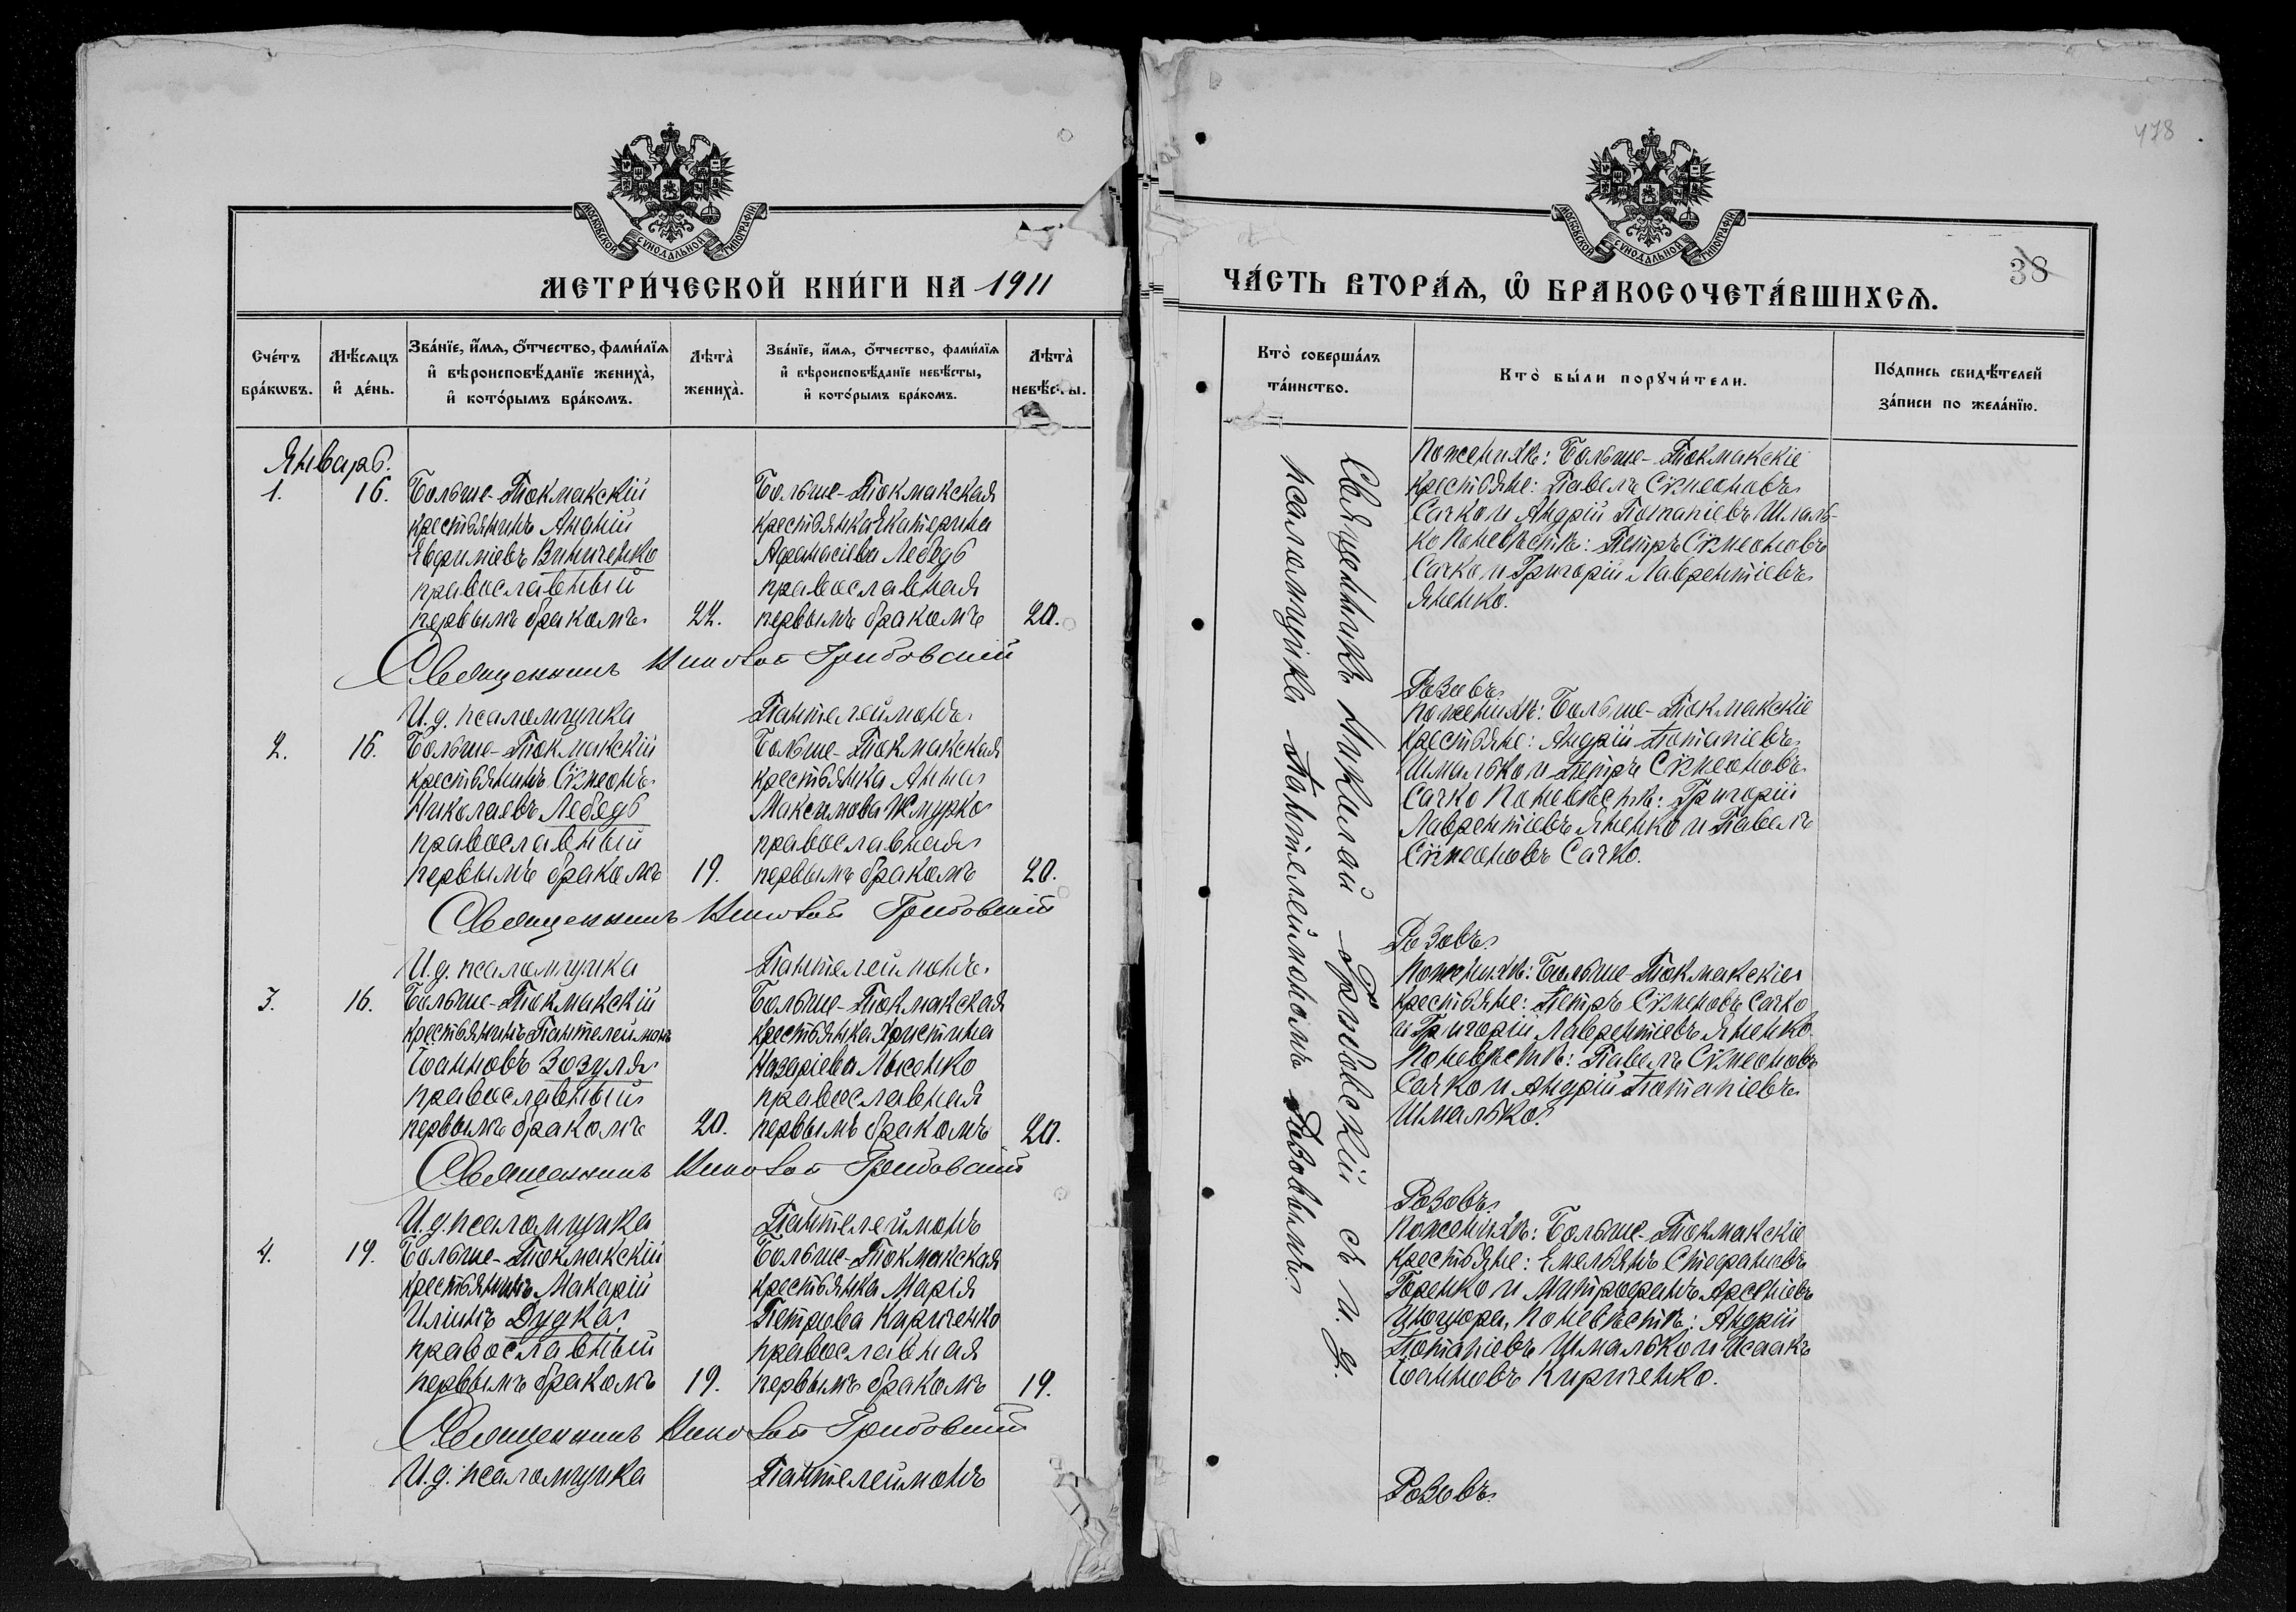 МОСКОВСКОЙ СѴНОДАЛЬНОЙ ТИПОГРАФІИ.
МЕТРИ́ЧЕСКОЙ КНИ́ГИ НА 1911
Сче́тъ бра́кωвъ.
Мѣ́сяцъ и҆ де́нь.
Зва́нїе, и҆́мѧ, ѻ҆́тчество, фами́лїѧ
и҆ вѣроисповѣ́данїе жениха̀,
и҆ кото́рымъ бра́комъ.
Лѣта̀ жениха̀.
Зва́нїе, и҆́мѧ, ѻ҆́тчество, фами́лїѧ
и҆ вѣроисповѣ́данїе невѣ́сты,
и҆ кото́рымъ бра́комъ.
Лѣта̀ невѣ́сты.
Январь.
1.
16.
Больше-Токмакскій
крестьянинъ Ананій
Евфиміевъ Виниченко
православный
первымъ бракомъ
22.
Больше-Токмакская
крестьянка Екатерина
Афанасіева Лебедь
православная
первымъ бракомъ
20.
Священникъ Николай Грибовскій
И.д. псаломщика Пантелеймонъ
2.
16.
Больше-Токмакскій
крестьянинъ Сѵмеонъ
Николаевъ Лебедь
православный
первымъ бракомъ
19.
Больше-Токмакская
крестьянка Анна
Максимова Жмурко
православная
первымъ бракомъ
20.
Священникъ Николай Грибовскій
И.д. псаломщика Пантелеймонъ
3.
16.
Больше-Токмакскій
крестьянинъ Пантелеимонъ
Іоанновъ Зозуля
православный
первымъ бракомъ
20.
Больше-Токмакская
крестьянка Христина
Назаріева Лысенко
православная
первымъ бракомъ
20.
Священникъ Николай Грибовскій
И.д. псаломщика Пантелеймонъ
4.
19.
Больше-Токмакскій
крестьянинъ Макарій
Иліинъ Дудка
православный
первымъ бракомъ
19.
Больше-Токмакская
крестьянка Марія
Петрова Кириченко
православная
первымъ бракомъ
19.
Священникъ Николай Грибовскій
И.д. псаломщика Пантелеймонъ
478
38
МОСКОВСКОЙ СѴНОДАЛЬНОЙ ТИПОГРАФІИ.
ЧА́СТЬ ВТОРА́Ѧ, Ѽ БРАКОСОЧЕТА́ВШИХСѦ.
Кто̀ соверша́лъ
та́инство.
Кто̀ бы́ли порꙋчи́тели.
По́дпись свидѣ́телей
за́писи по жела́нїю.
Священникъ Николай Грибовскій съ и. д.
псаломщика Пантелеймономъ Розовымъ.
По женихѣ: Больше-Токмакскіе
крестьяне: Павелъ Сѵмеоновъ
Сачко и Андрій Потапіевъ Шмаль-
ко По невѣстѣ: Петръ Сѵмеоновъ
Сачко и Григорій Лаврентіевъ
Яненко.
Розовъ.
По женихѣ: Больше-Токмакскіе
крестьяне: Андрій Потапіевъ
Шмалько и Петръ Сѵмеоновъ
Сачко По невѣстѣ: Григорій
Лаврентіевъ Яненко и Павелъ
Сѵмеоновъ Сачко.
Розовъ.
По женихѣ: Больше-Токмакскіе
крестьяне: Петръ Сѵменовъ Сачко
и Григорій Лаврентіевъ Яненко.
По невѣстѣ: Павелъ Сѵмеоновъ
Сачко и Андрій Потапіевъ
Шмалько.
Розовъ.
По женихѣ: Больше-Токмакскіе
крестьяне: Емельянъ Стефановъ
Горенко и Митрофанъ Арсеніевъ
Цюцюра, По невѣстѣ: Андрій
Потапіевъ Шмалько и Исаакъ
Іоанновъ Кириченко.
Розовъ.